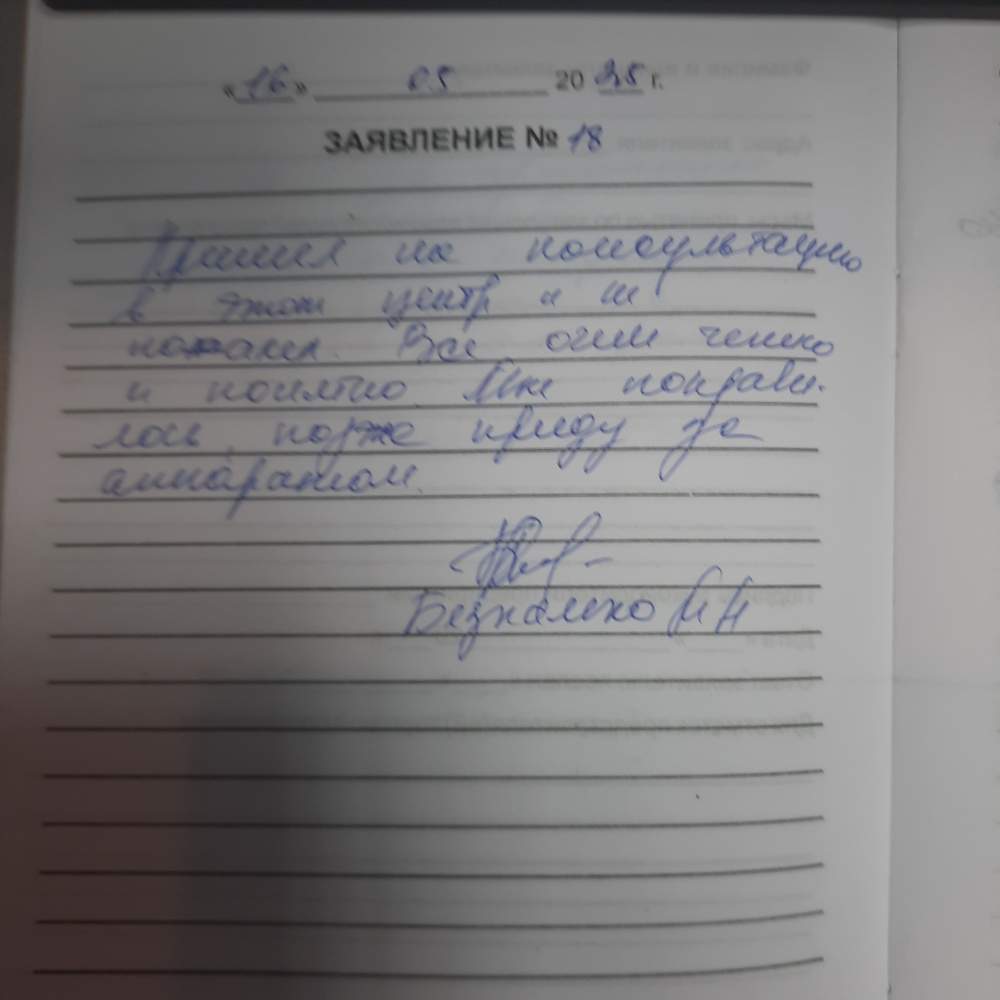 «16» 05 2025 г.
ЗАЯВЛЕНИЕ № 18
Пришел на консультацию
в этот центр и не
пожалел. Все очень четко
и понятно. Мне понрави-
лось, позже приду за
аппаратом.
Безналько